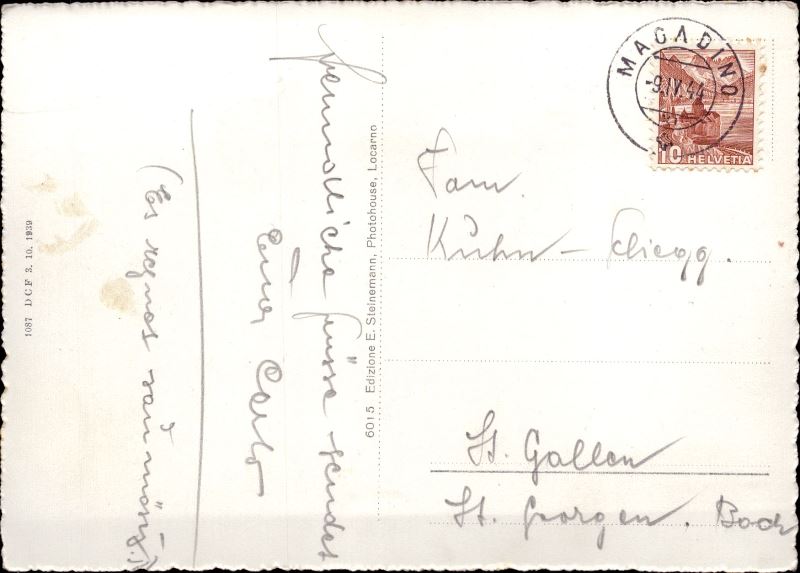 freundliche Grüsse sendet
Euer Carlo
(Es regnet
6015 Edizione E. Steinemann, Photohouse, Locarno
1087 DCF 3. 10. 1939
MAGADINO
-9.IV.44
10 HELVETIA
Fam.
Kühn - Schegg.
St. Gallen
St. Georgen. Bach